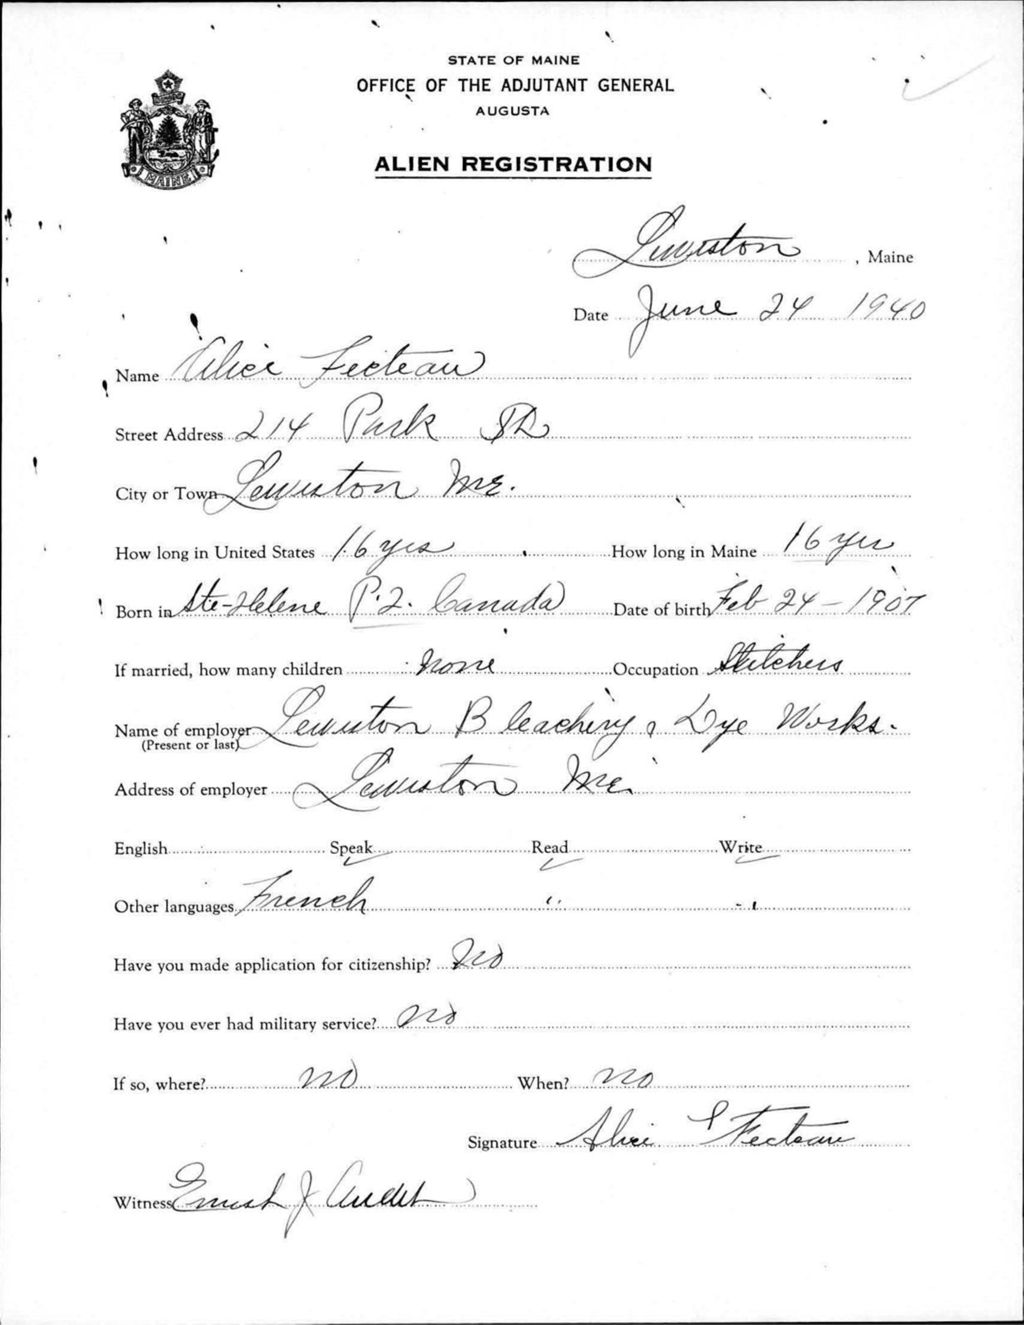 STATE OF MAINE
OFFICE OF THE ADJUTANT GENERAL
AUGUSTA
MAINE
ALIEN REGISTRATION
Lewiston, Maine
Date June 24 1940
Name Alice Fecteau
Street Address 214 Park St
City or Town Lewiston Me.
How long in United States 16 yrs How long in Maine 16 yrs
Born in Ste-Helene P.Q. Canada Date of birth Feb 24 - 1907
If married, how many children none Occupation Stitchers
Name of employer Lewiston Bleaching & Dye Works.
(Present or last)
Address of employer Lewiston Me.
English Speak Read Write
Other languages French " "
Have you made application for citizenship? No
Have you ever had military service? No
If so, where? no When? no
Signature Alice Fecteau
Witness Ernest J Audet